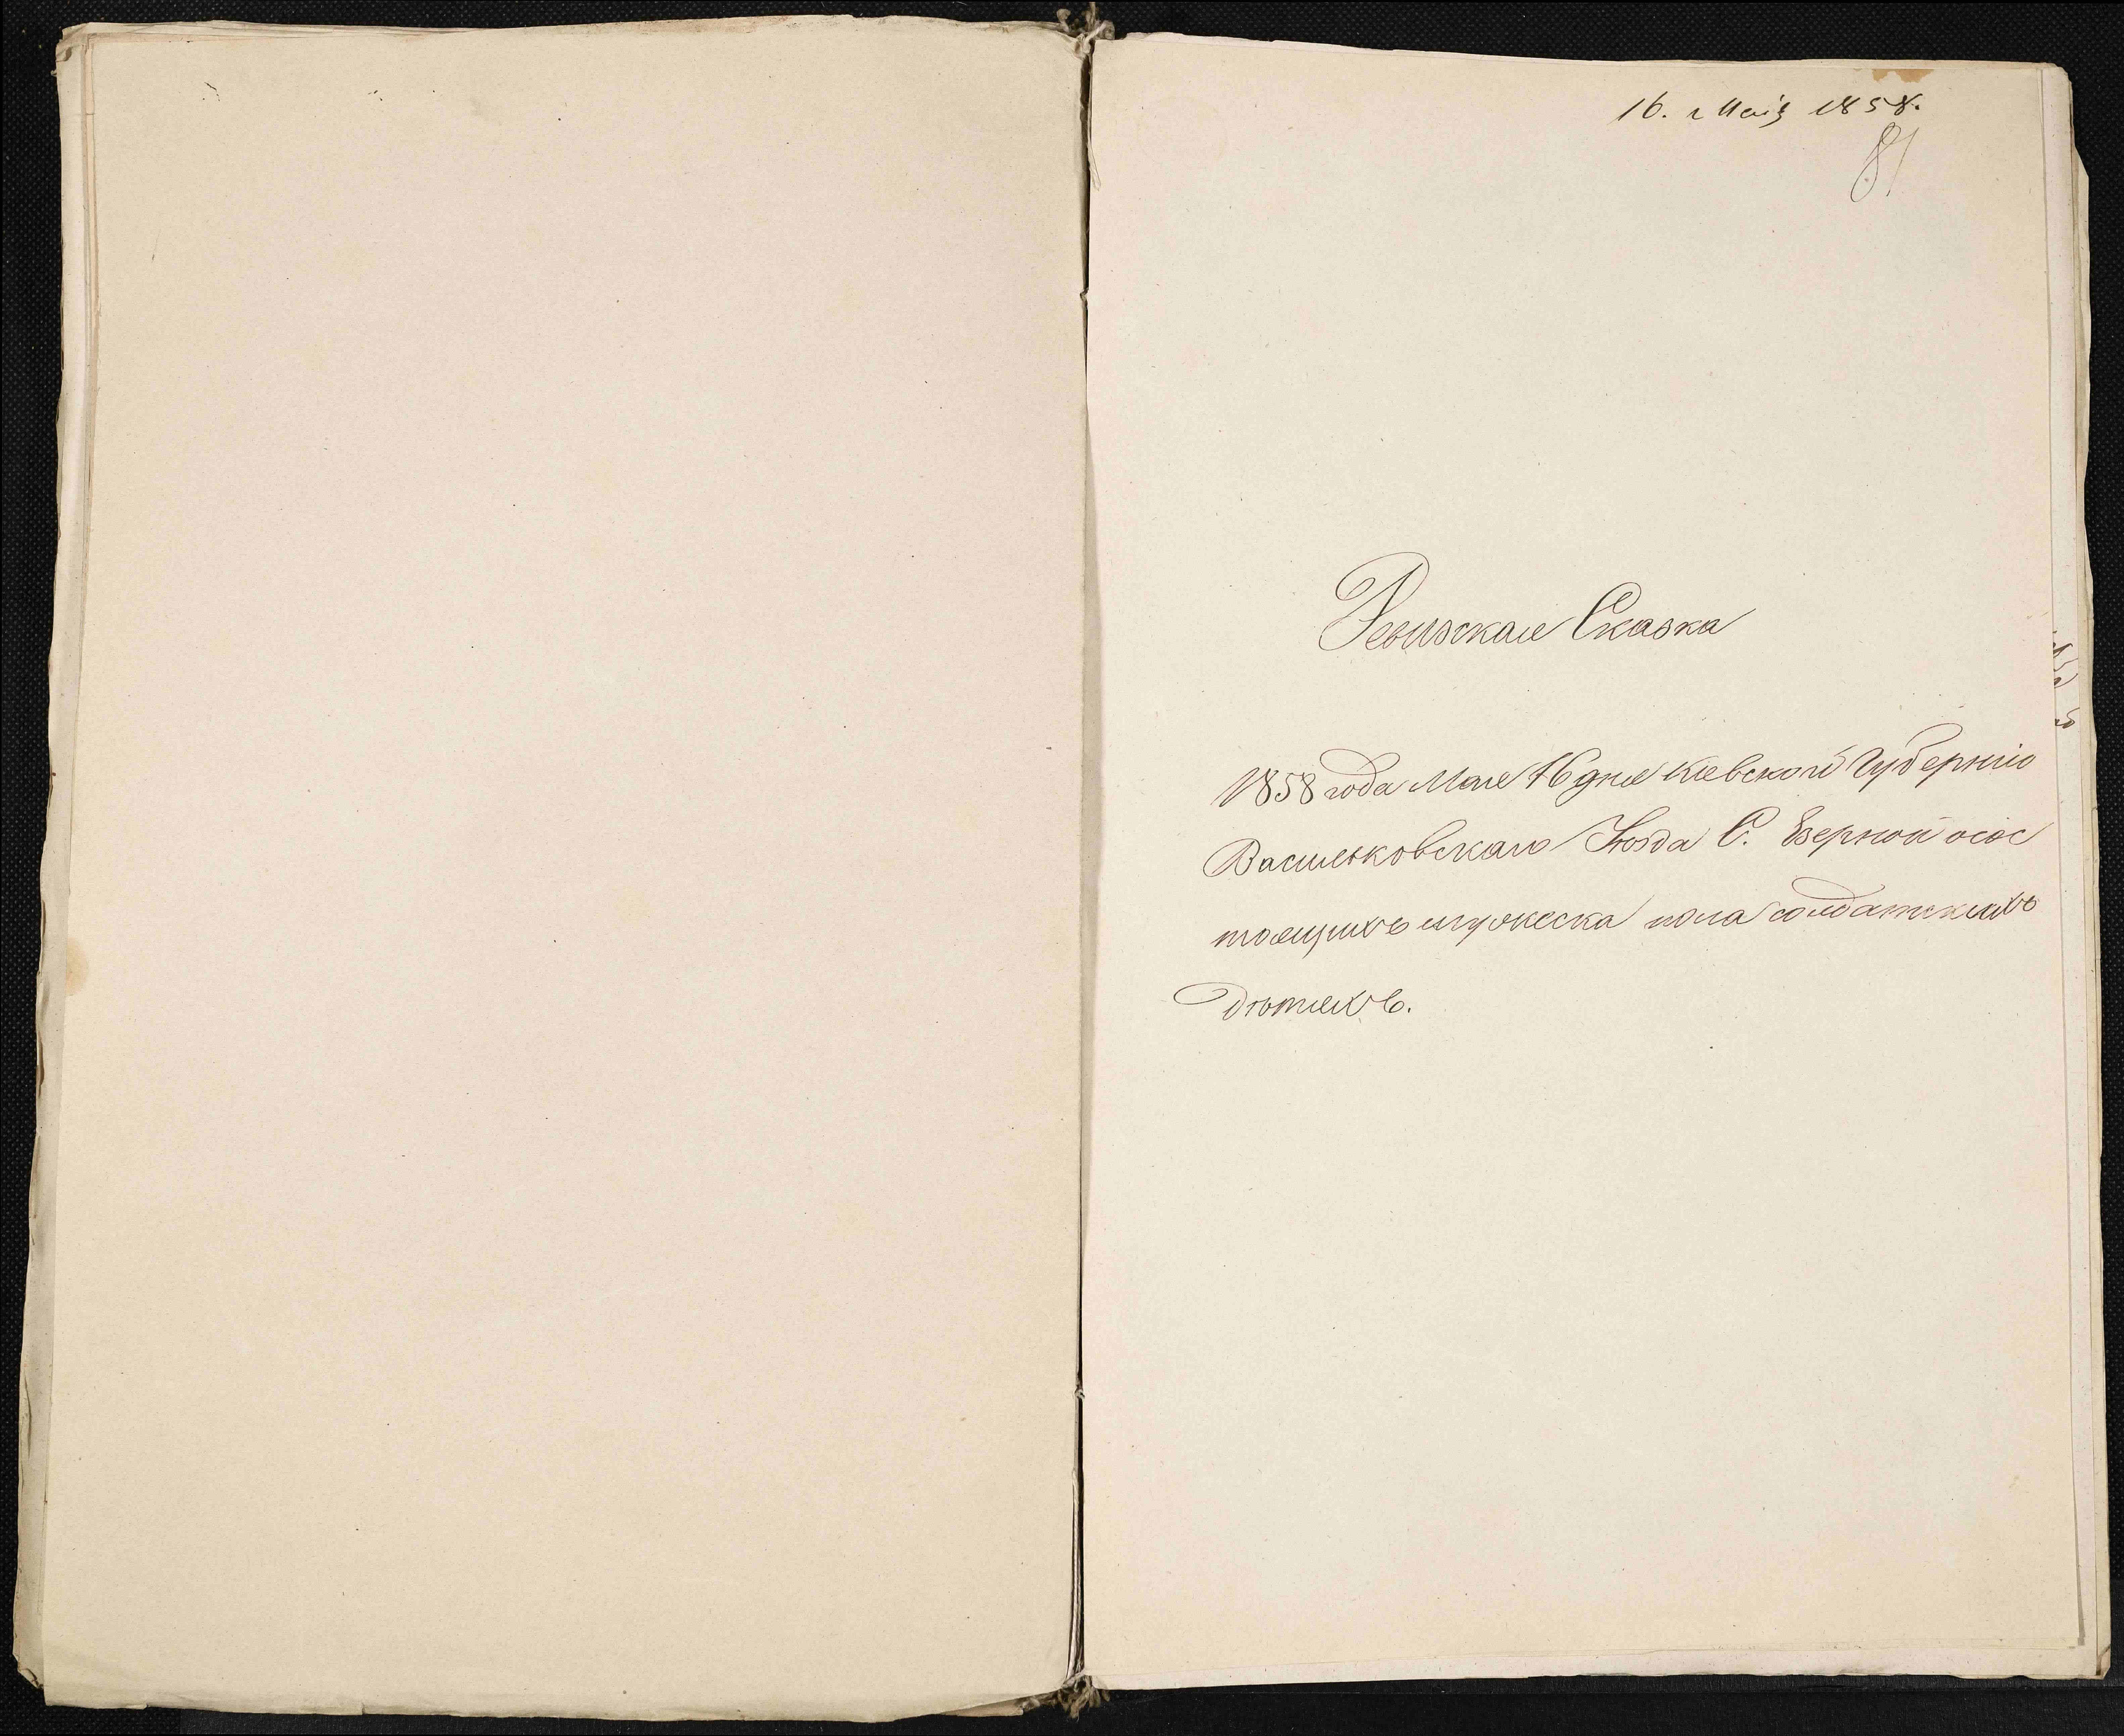 16. Маія 1858.
81
Ревизская Сказка
1858 года Мая 16 дня Киевской Губерніи
Васильковскаго Уѣзда С. Езерной
мужеска пола солдатскихъ
дѣтяхъ.